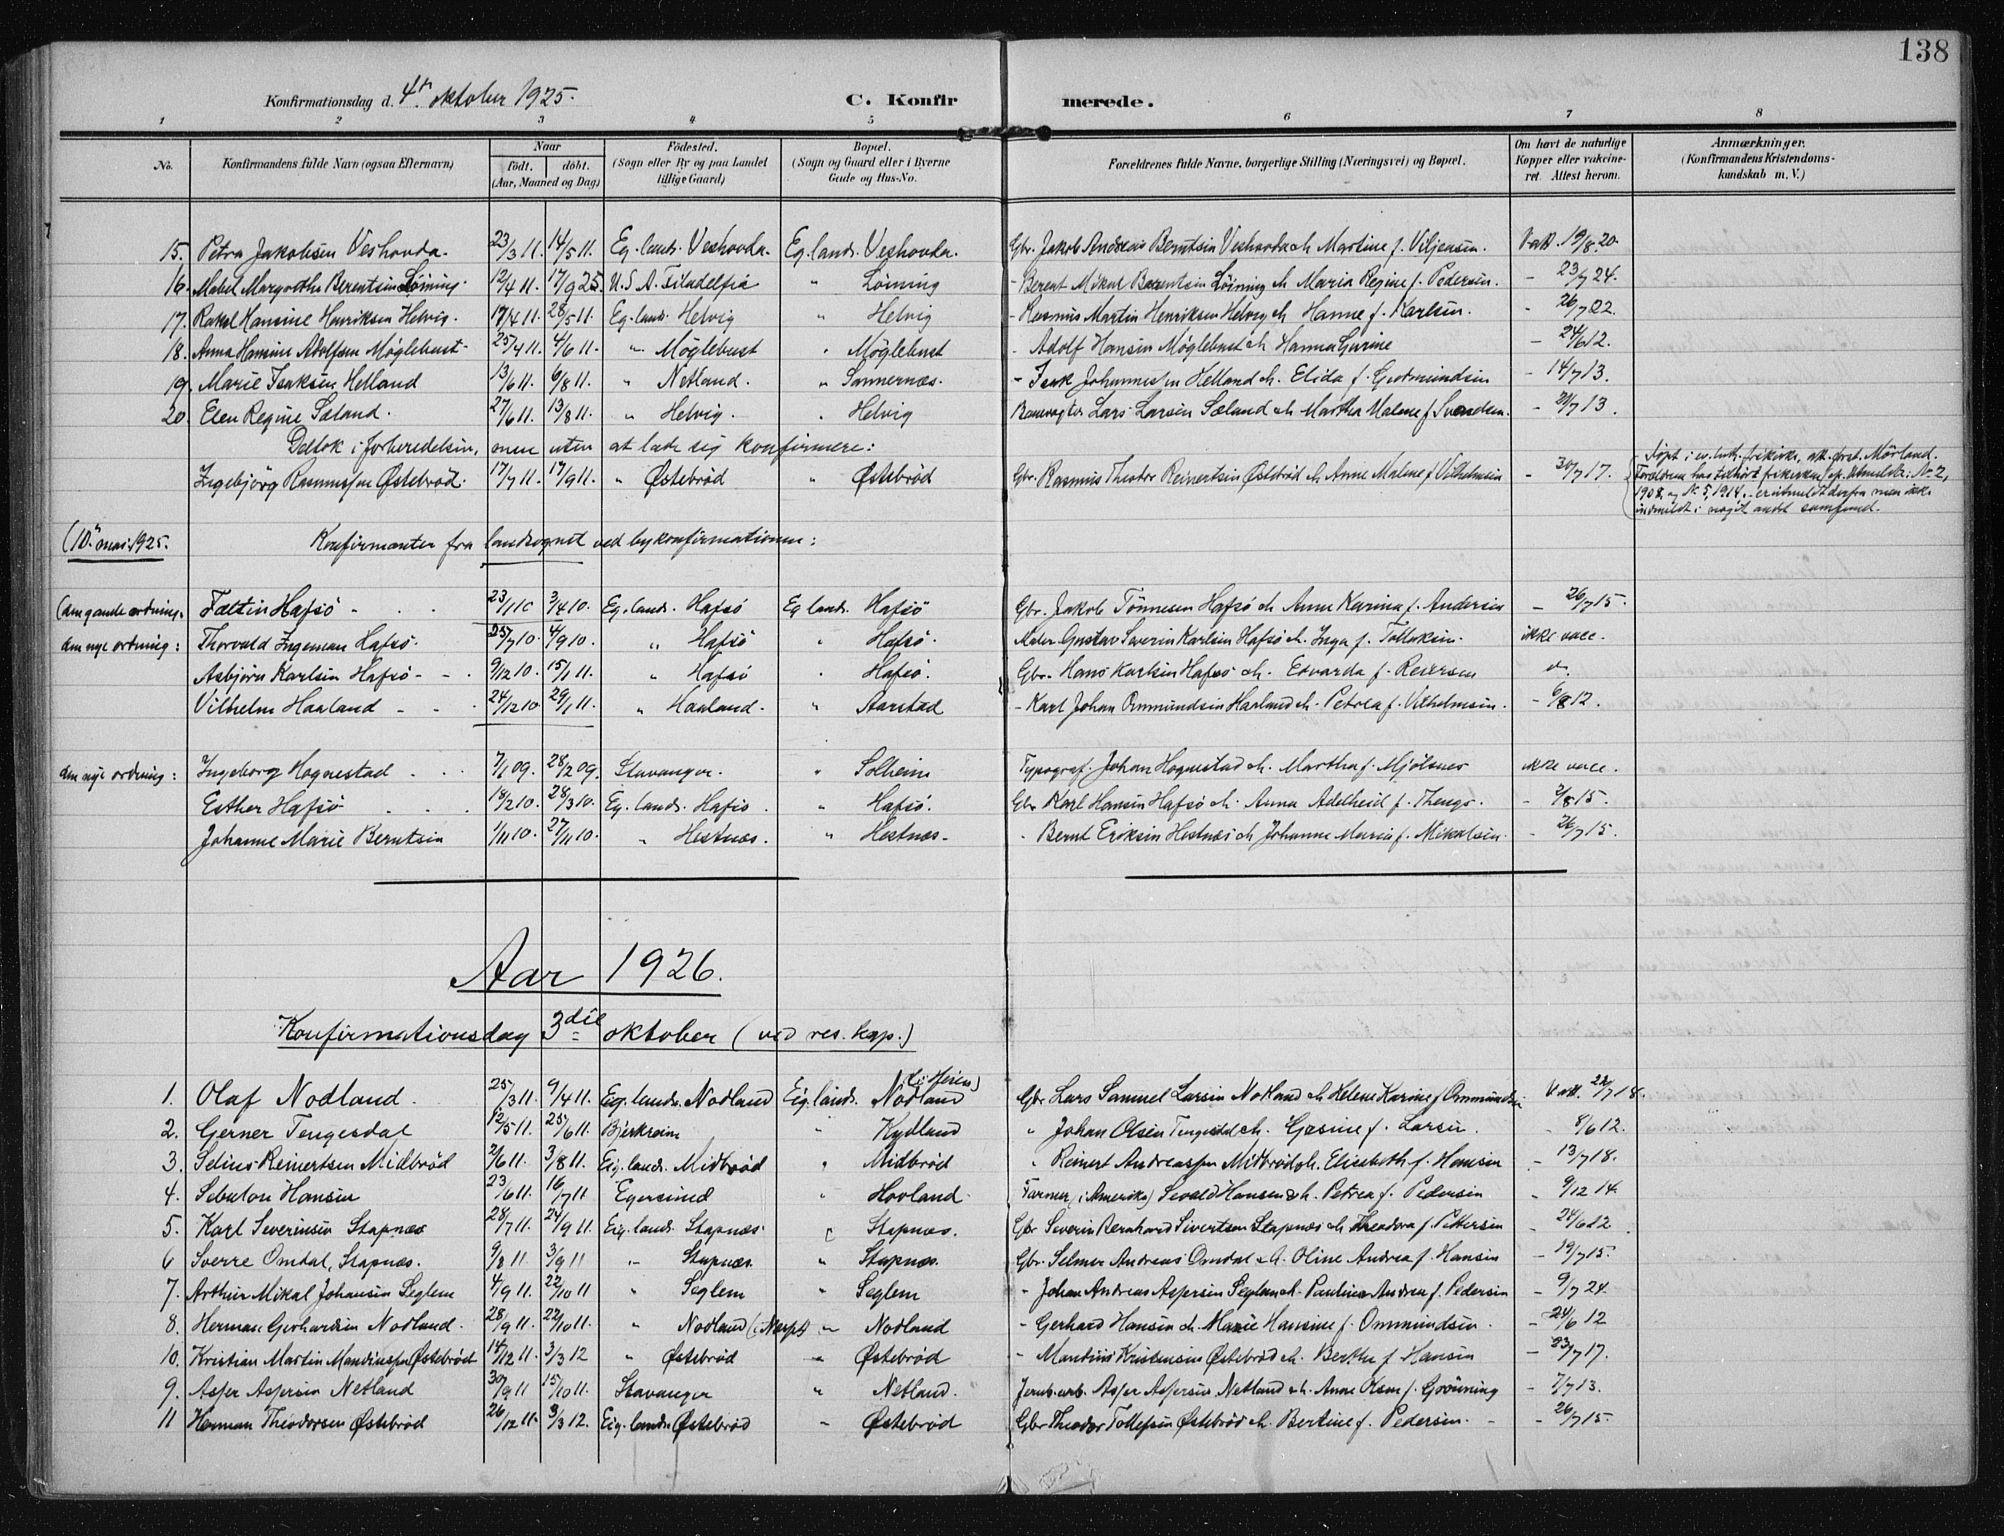 138
Konfirmationsdag d. 4de oktober 1925. C. Konfirmerede.
1 2 3 4 5 6 7 8
No. Konfirmandens fulde Navn (ogsaa Efternavn) Naar født. døbt. (Aar, Maaned og Dag) Fødested. (Sogn eller By og paa Landet tillige Gaard) Bopæl. (Sogn og Gaard eller i Byerne Gade og Hus-No. Forældrenes fulde Navne, borgerlige Stilling (Næringsvei) og Bopæl. Om havt de naturlige Kopper eller vakcineret. Attest herom. Anmærkninger. (Konfirmandens Kristendomskundskab m. V.)
15. Petra Jakobsen Veshovda. 23/3 11. 14/5 11. Eg. lands. Veshovda. Eg. lands. Veshovda. Gbr. Jakob Andreas Berntsen Veshovda & h. Martine f. Viljensen. Vatt. 19/8 20.
16. Mabel Margretha Berentsen Löining. 12/4 11. 17/9 25. U.S.A. Filadelfia " Löining - Berent Mikal Berentsen Löining & h. Maria Regine f. Pedersen. - 23/7 24.
17. Rakel Hansine Henriksen Helvig. 17/4 11. 28/5 11. Eg. lands. Helvig " Helvig - Rasmus Martin Henriksen Helvig & h. Hanne f. Karlsen. - 26/7 22
18. Anna Hansine Adolfsen Möglebust. 25/4 11. 4/6 11. " Möglebust " Möglebust - Adolf Hansen Möglebust & h. Hanna Gurine - 24/6 12.
19. Marie Isaksen Helland 13/6 11. 6/8 11. " Netland. " Sannernæs. - Isak Johannessen Helland & h. Elida f. Gudmundsen - 14/7 13.
20. Elen Regine Sæland. 27/6 11. 13/8 11. " Helvig. " Helvig Banevogter Lars Larsen Sæland & h. Martha Malene f. Svendsen. - 21/7 13.
Deltok i forberedelsen, men uten at lade sig konfirmere:
Ingebjörg Rasmussen Östebröd. 17/7 11. 17/9 11. " Östebröd " Östebröd Gbr. Rasmus Theodor Reinertsen Östebröd & h. Anne Malene f. Vilhelmsen - 30/7 17. Döpt i ev. luth. frikirke, att. prest. Mörland. Forældrene har tilhört frikirken, cfr. utmeldte: Nr 2, 1908, og Nr 5, 1914. - er utmeldt derfra men ikke indmeldt i noget andet samfund.
(10de mai 1925. Konfirmanter fra landsognet ved bykonfirmationen:
(den gamle ordning: Faltin Hafsö - 23/1 10 3/4 10. Eg. lands. Hafsö Eg lands. Hafsö Gbr. Jakob Tönnesen Hafsö & h. Anne Karina f. Andersen - 26/7 15.
den nye ordning: Thorvald Ingeman Hafsö. 25/7 10. 4/9 10. " Hafsö " Hafsö. Maler Gustav Severin Karlsen Hafsö & h. Inga f. Tolleksen. ikke vacc.
Asbjörn Karlsen Hafsö - - 9/12 10. 15/1 11. " Hafsö . Hafsö. Gbr. Hans Karlsen Hafsö & h. Edvarda f. Reiersen do
Vilhelm Haaland - - - 24/12 10. 29/1 11. " Haaland. " Aarstad - Karl Johan Ommundsen Haaland & h. Petrea f. Vilhelmsen. - 6/8 12.
den nye ordning: Ingeborg Hognestad 7/1 09. 28/2 09. Stavanger. " Solheim Typograf. Johan Hognestad & h. Martha f. Mjölsnes ikke vacc.
Esther Hafsö 18/2 10. 28/3 10. Eg. lands. Hafsö " Hafsö. Gbr Karl Hansen Hafsö & h. Anna Adelheid f. Thengs. - 2/8 15.
Johanne Marie Berntsen 1/11 10. 27/11 10. " Hestnæs. " Hestnæs. - Bernt Eriksen Hestnæs & h. Johanne Maria f. Mikalsen. - 26/7 15.
Aar 1926.
Konfirmationsdag 3die oktober (ved res. kap.)
1. Olaf Nodland. 25/3 11. 9/4 11. Eig. lands. Nodland Eig. lands. Nodland Gbr. Lars Samuel Larsen Nodland & h. Helene Karine f. Ommundsen Vatt. 22/7 18.
2. Gerner Tengesdal 12/5 11. 25/6 11. Bjerkreim " Kydland " Johan Olsen Tengesdal & h. Gesine f. Larsen. - 8/6 12.
3. Selius Reinertsen Midbröd 2/6 11. 3/8 11. Eig. lands. Midbröd " Midbröd " Reinert Andreassen Midbröd & h. Elisabeth f. Hansen - 13/7 18.
4. Sebulon Hansen 23/6 11. 16/7 11 Egersund " Hovland. Farmer (i Amerika) Sevald Hansen & h. Petrea f. Pedersen - 9/12 14.
5. Karl Severinsen Stapnæs 28/7 11. 24/9 11. Eig. lands. Stapnæs " Stapnæs. Gbr. Severin Bernhard Sivertsen Stapnæs & h. Theodora f. Pettersen - 24/6 12
6 Sverre Omdal, Stapnæs. 9/8 11 3/9 11 " Stapnæs. " Stapnæs. Gbr. Selmer Andreas Omdal & h. Oline Andrea f. Hansen - 19/7 15.
7. Arthur Mikal Johansen Seglem 4/9 11. 22/10 11 " Seglem " Seglem - Johan Andreas Aspersen Seglem & h. Pauline Andrea f. Pedersen - 9/7 24.
8. Herman Gerhardsen Nodland. 28/9 11. 22/10 11. " Nodland " Nodland - Gerhard Hansen & h. Marie Hansine f. Ommundsen. - 24/6 12
10. Kristian Martin Mandiussen Östebröd 14/12 11. 3/3 12 " Östebröd " Östebröd - Mandius Kristensen Östebröd & h. Berthe f. Hansen - 23/7 17.
9. Asser Assersen Netland 30/9 11 15/10 11. Stavanger " Netland. Jernb. arb. Asser Assersen Netland & h. Anne Olson f. Grönning - 7/7 13.
11 Herman Theodorsen Östebröd 26/12 11. 3/3 12. Eig. lands. Östebröd " Östebröd Gbr Theodor Tollefsen Östebröd & h. Bertine f. Pedersen. - 26/7 15.